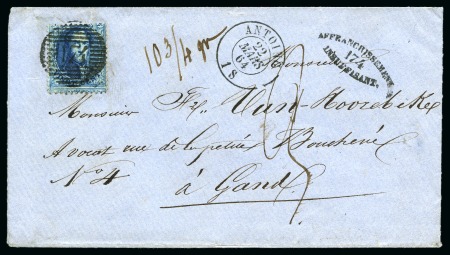 10 3/4 gr
ANTOIN
22
MARS
64
1 S
AFFRANCHISSEMENT
174
INSUFFISANT.
Monsieur
Monsieur Fx. Van-Hoorebeke
Avocat rue de la petite Boucherie
N° 4
à Gand